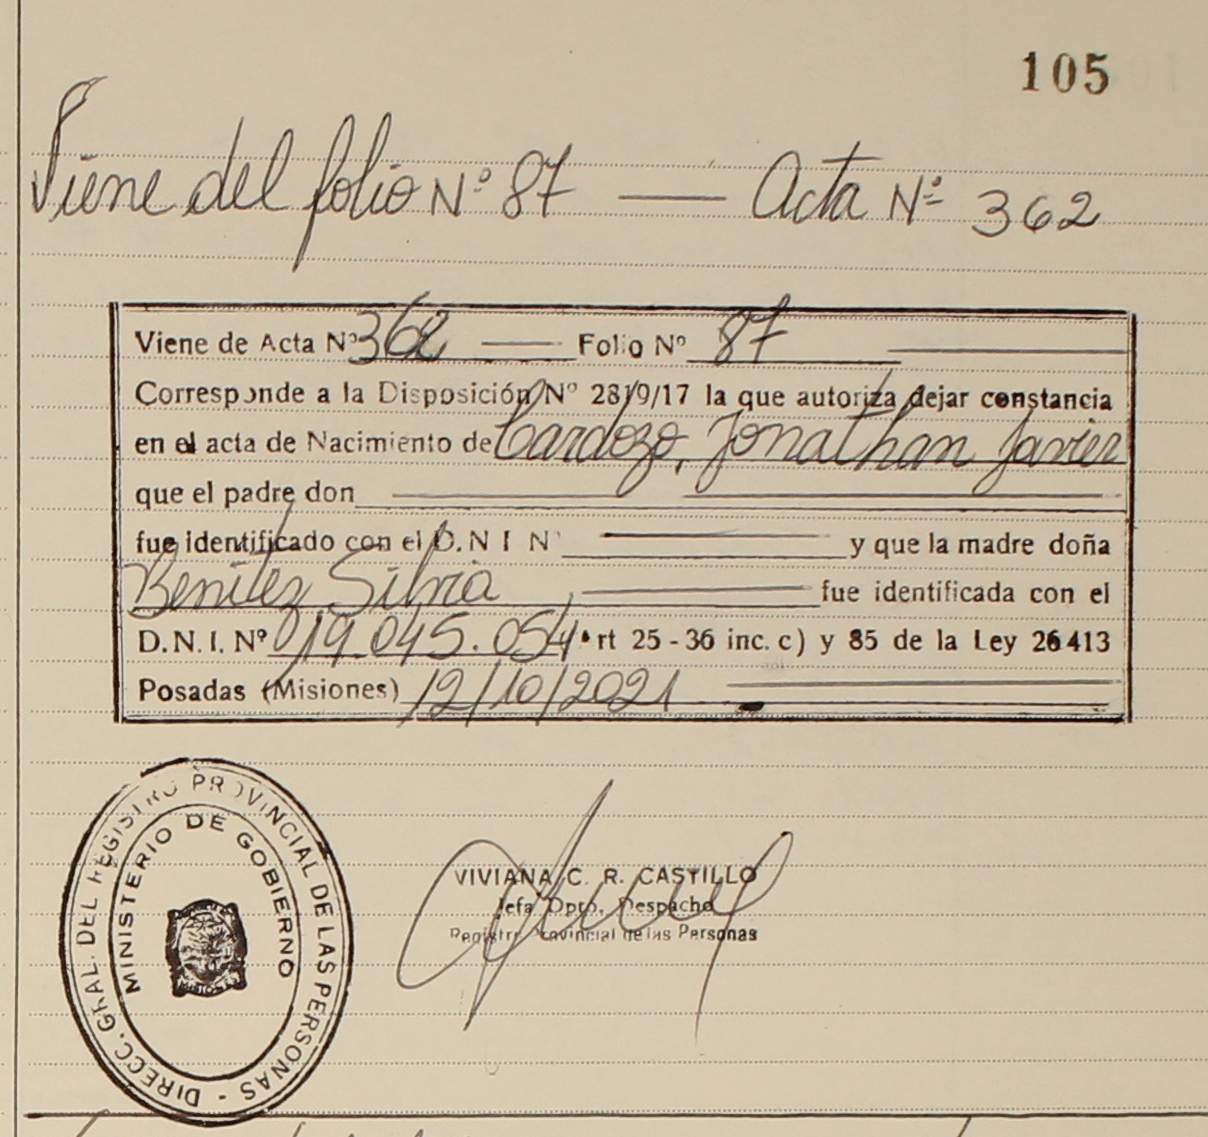 105
Viene del folio Nº 87 — Acta Nº 362
Viene de Acta Nº 362 — Folio Nº 87
Corresponde a la Disposición Nº 2819/17 la que autoriza dejar constancia
en el acta de Nacimiento de Cardozo, Jonathan Javier
que el padre don
fue identificado con el D.N I Nº y que la madre doña
Benitez Silvia, fue identificada con el
D.N.I. Nº 019.045.054 Art 25-36 inc. c) y 85 de la Ley 26413
Posadas (Misiones) 12/10/2021
DIRECC. GRAL. DEL REGISTRO PROVINCIAL DE LAS PERSONAS -
MINISTERIO DE GOBIERNO
MISIONES
VIVIANA C. R. CASTILLO
Jefa Dpto. Despacho
Registro Provincial de las Personas